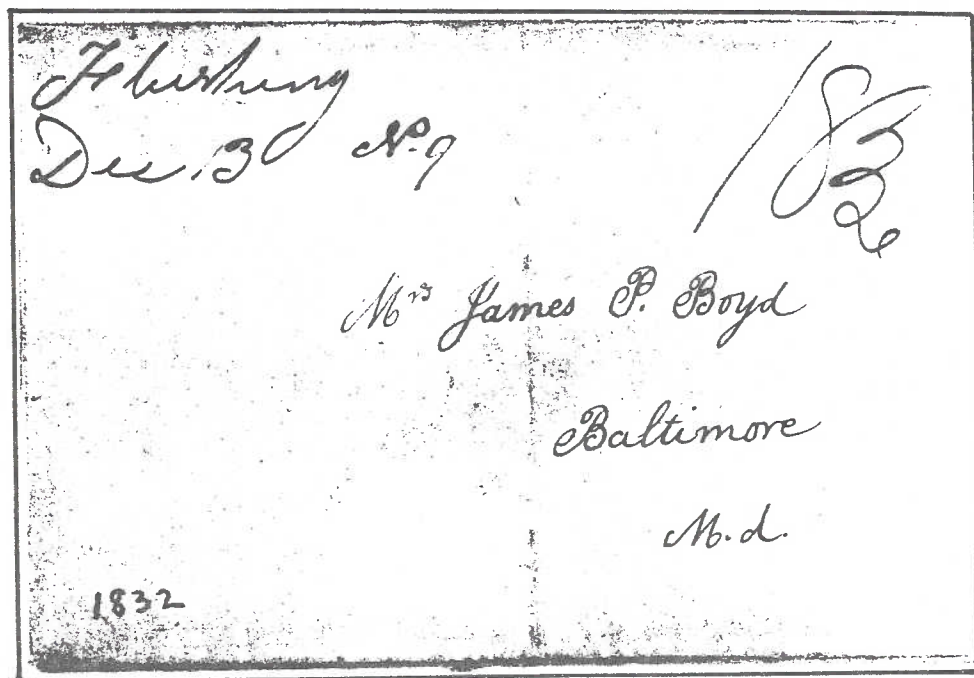 Flushing
Dec 13 N.Y
18 3/4
Mrs James P. Boyd
Baltimore
M.d.
1832